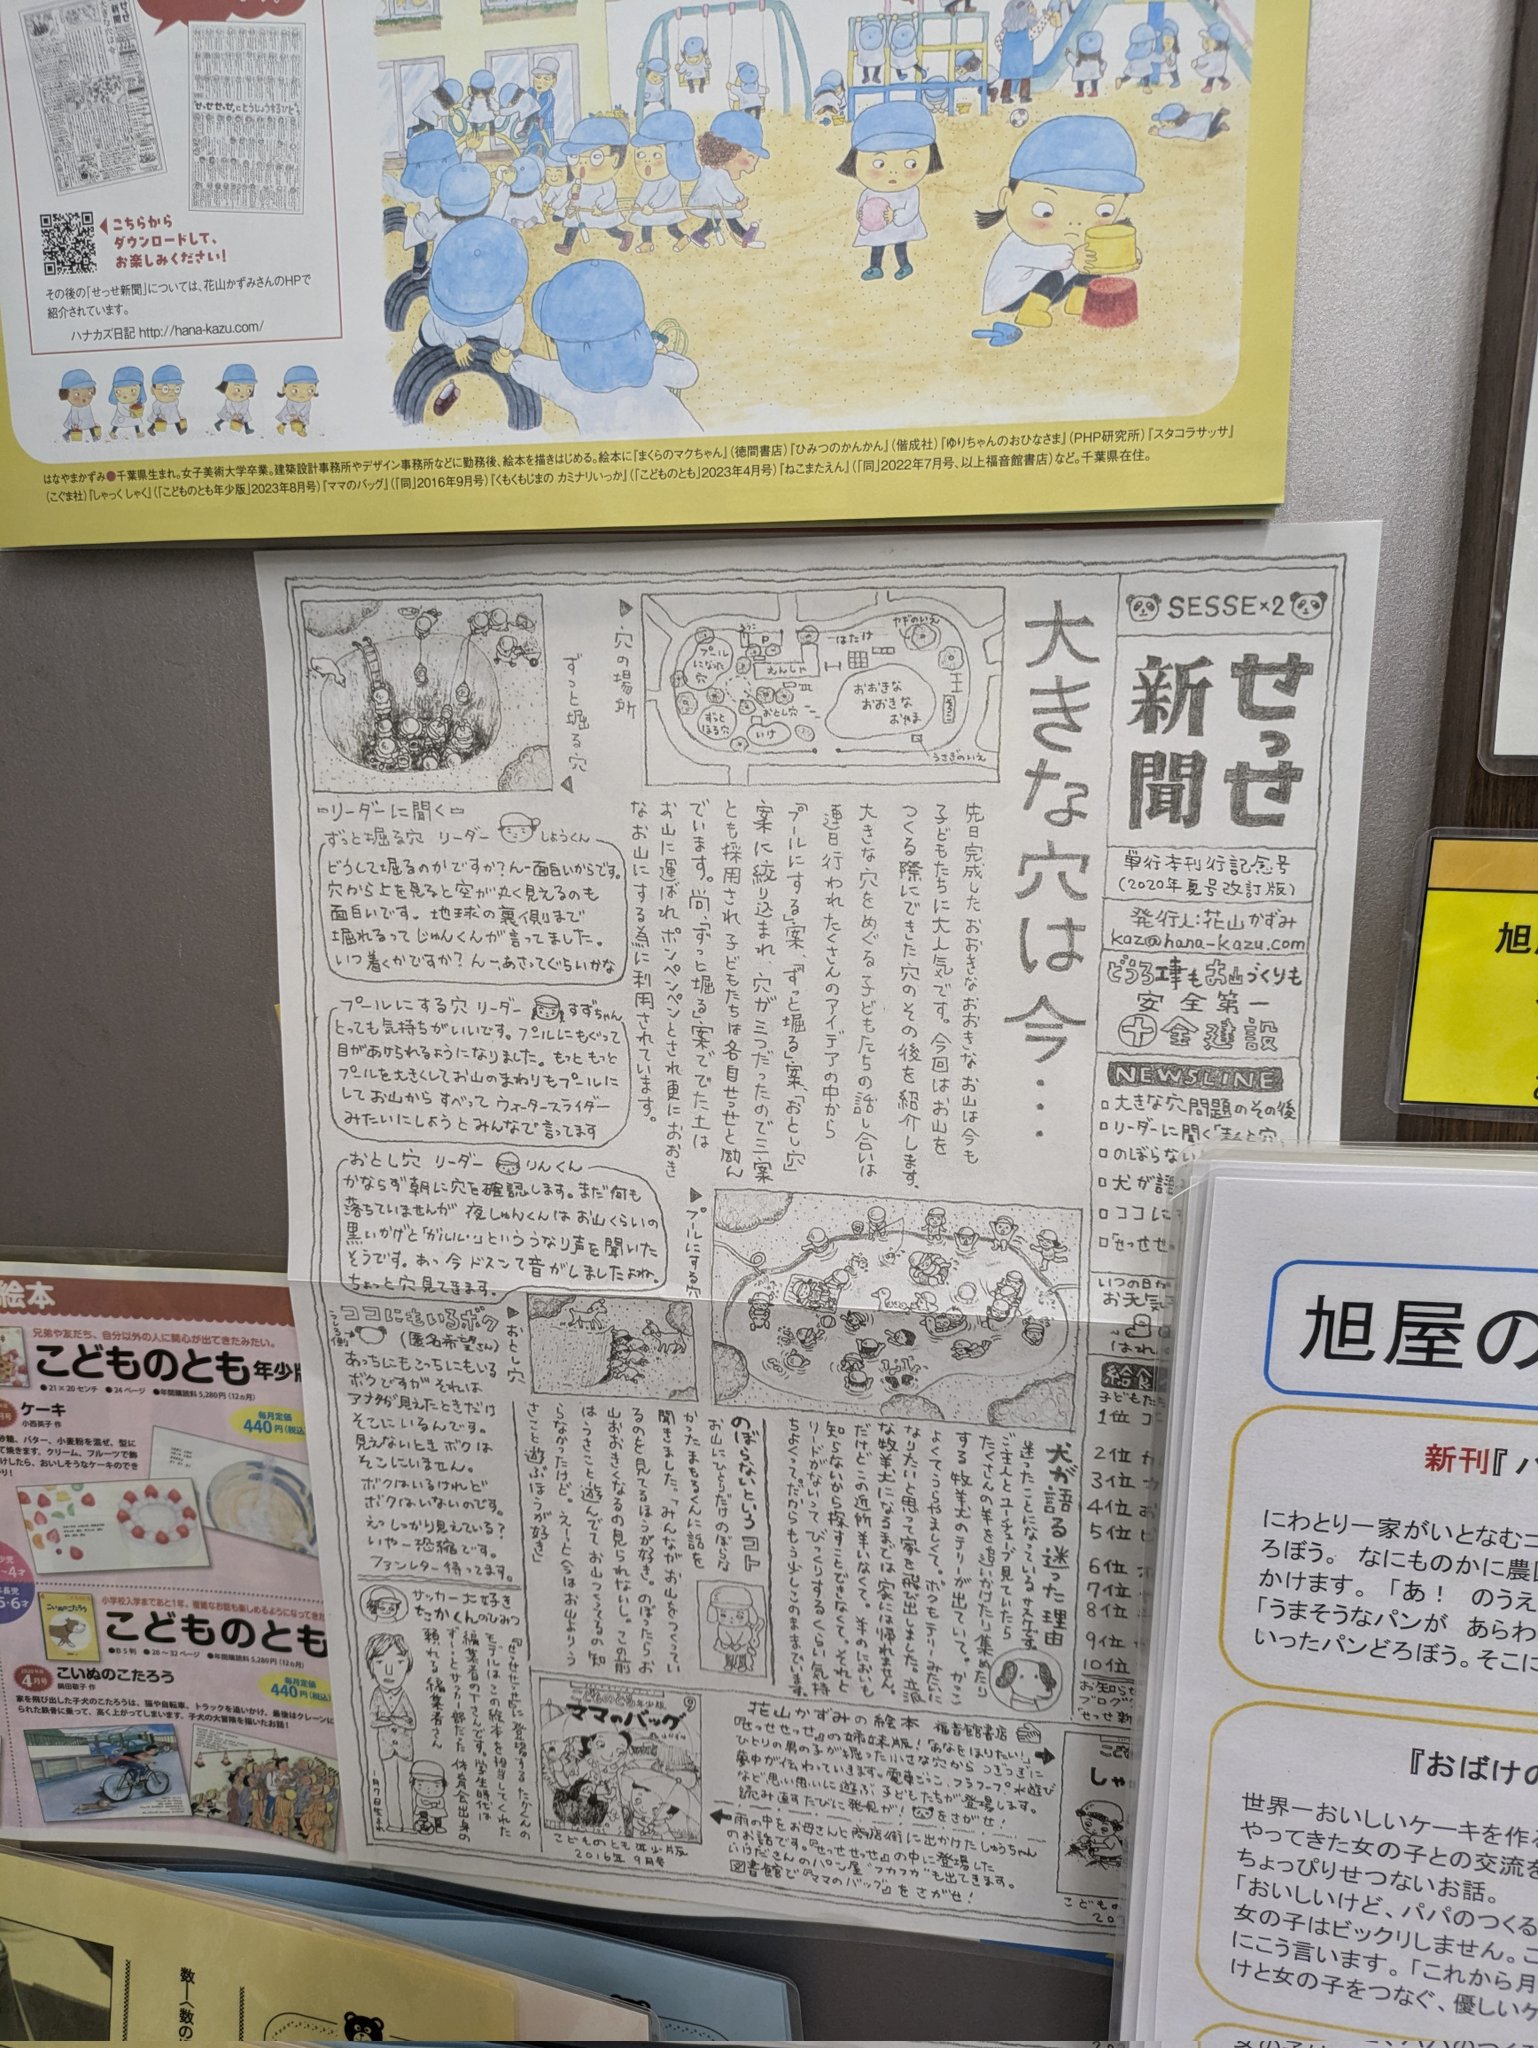 こちらから
ダウンロードして、
お楽しみください!
その後の「せっせ新聞」については、花山かずみさんのHPで
紹介されています。
ハナカズ日記 http://hana-kazu.com/
はなやまかずみ●千葉県生まれ。女子美術大学卒業。建築設計事務所やデザイン事務所などに勤務後、絵本を描きはじめる。絵本に『まくらのマクちゃん』(徳間書店)『ひみつのかんかん』(偕成社)『ゆりちゃんのおひなさま』(PHP研究所)『スタコラサッサ』
(こぐま社)『しゃっく しゃく』(「こどものとも年少版」2023年8月号)『ママのバッグ』(「同」2016年9月号)『くもくもじまの カミナリいっか』(「こどものとも」2023年4月号)『ねこまたえん』(「同」2022年7月号、以上福音館書店)など。千葉県在住。
SESSE×2
せっせ
新聞
単行本刊行記念号
(2020年夏号改訂版)
発行人:花山かずみ
kaz@hana-kazu.com
どうろ工事もお山づくりも
安全第一
金建設
NEWSLINE
大きな穴問題のその後
リーダーに聞く
のぼらない
犬が語
ココに
「せっせせ
いつの日か
お天気
給食
子どもた
1位
2位
3位
4位
5位
6位
7位
8位
9位
10位
お知らせ
ブログ
せっせ新
大きな穴は今…
プール
になった
穴
P
えんしゃ
はたけ
ヤギのいえ
おおきな
おおきな
おやま
ずっと
ほる穴
おとし穴
いけ
うさぎのいえ
▶穴の場所
ずっと堀る穴▶
先日完成したおおきなおおきなお山は今も
子どもたちに大人気です。今回はお山を
つくる際にできた穴のその後を紹介します。
大きな穴をめぐる子どもたちの話し合いは
連日行われたくさんのアイデアの中から
「プールにする」案、「ずっと堀る」案、「おとし穴」
案に絞り込まれ、穴が三つだったので三案
とも採用され子どもたちは各自せっせと励ん
でいます。尚、「ずっと堀る」案ででた土は
お山に運ばれポンペンペンとされ更におおき
なお山にする為に利用されています。
リーダーに聞く
ずっと堀る穴 リーダー しょうくん
どうして堀るのかですか?んー面白いからです。
穴から上を見ると空が丸く見えるのも
面白いです。地球の裏側まで
堀れるってじゅんくんが言ってました。
いつ着くかですか?んー、あさってぐらいかな
プールにする穴 リーダー すずちゃん
とっても気持ちがいいです。プールにもぐって
目があけられるようになりました。もっともっと
プールを大きくしてお山のまわりもプールに
してお山からすべってウォータースライダー
みたいにしようとみんなで言ってます
おとし穴 リーダー りんくん
かならず朝に穴を確認します。まだ何も
落ちていませんが夜しゅんくんはお山くらいの
黒いかげと「ガルルル…」といううなり声を聞いた
そうです。あっ今ドスンて音がしましたよね。
ちょっと穴見てきます。
▶プールにする穴
▶おとし穴
ココにもいるボク
(匿名希望さん)
あっちにもこっちにもいる
ボクですがそれは
アナタが見えたときだけ
そこにいるんです。
見えないときボクは
そこにいません。
ボクはいるけれど
ボクはいないのです。
えっしっかり見えている?
いやー恐縮です。
ファンレター待ってます。
犬が語る迷った理由
迷ったことになっているサスケです。
ご主人とユーチューブ見ていたら
たくさんの羊を追いかけたり集めたり
する牧羊犬のテリーが出ていて。かっこ
よくてうらやましくて。ボクもテリーみたいに
なりたいと思って家を飛び出しました。立派
な牧羊犬になるまでは家には帰れません。
だけどこの近所羊いなくて。羊のにおいも
知らないから探すこともできなくて。それと
リードがないってびっくりするくらい気持
ちよくって。だからもう少しこのままでいます。
のぼらないというコト
お山にひとりだけのぼらな
かったまもるくんに話を
聞きました。「みんながお山をつくってい
るのを見てるほうが好き。のぼったらお
山おおきくなるの見られないし。この前
はうさこと遊んでてお山つくってるの知
らなかったけど。えーと今はお山よりう
さこと遊ぶほうが好き」
サッカー大好き
たかくんのひみつ
『せっせせっせ』に登場するたかくんの
モデルはこの絵本を担当してくれた
編集者のTさんです。学生時代は
ずーっとサッカー部だった体育会出身の
頼れる編集者さん
こどものとも年少版
ママのバッグ
こどものとも年少版
2016年9月号
花山かずみの絵本 福音館書店
『せっせせっせ』の姉妹版!『あなをほりたい!』
ひとりの男の子が掘った小さな穴からつぎつぎに
夢中が伝わっていきます。電車ごっこ、フラフープ、水遊び
など思い思いに遊ぶ子どもたちが登場します。
読み直すたびに発見が!をさがせ!
雨の中をお母さんと商店街に出かけたしゅうちゃん
のお話です。『せっせせっせ』の中に登場した
いけださんのパン屋"フカフカ"も出てきます。
図書館で『ママのバッグ』をさがせ!
絵本
兄弟や友だち、自分以外の人に関心が出てきたみたい。
こどものとも年少版
●21×20センチ ●24ページ ●年間購読料5,280円(12ヵ月)
ケーキ
小西英子 作
毎月定価
440円(税込)
小学校入学まであと1年。複雑なお話も楽しめるようになってきた
こどものとも
●B5判 ●28~32ページ ●年間購読料5,280円(12ヵ月)
4月号
こいぬのこたろう
鍋田敬子 作
毎月定価
440円(税込)
家を飛び出した子犬のこたろうは、猫や自転車、トラックを追いかけ、最後はクレーンに
られた鉄骨に乗って、高く上がってしまいます。子犬の大冒険を描いたお話!
旭屋の
新刊『パ
にわとり一家がいとなむニ
ろぼう。 なにものかに農
かけます。「あ! のうえ
「うまそうなパンが あらわ
いったパンどろぼう。そこに
『おばけの
世界一おいしいケーキを作る
やってきた女の子との交流を
ちょっぴりせつないお話。
「おいしいけど、パパのつくる
女の子はビックリしません。こ
にこう言います。「これから月
けと女の子をつなぐ、優しいケ